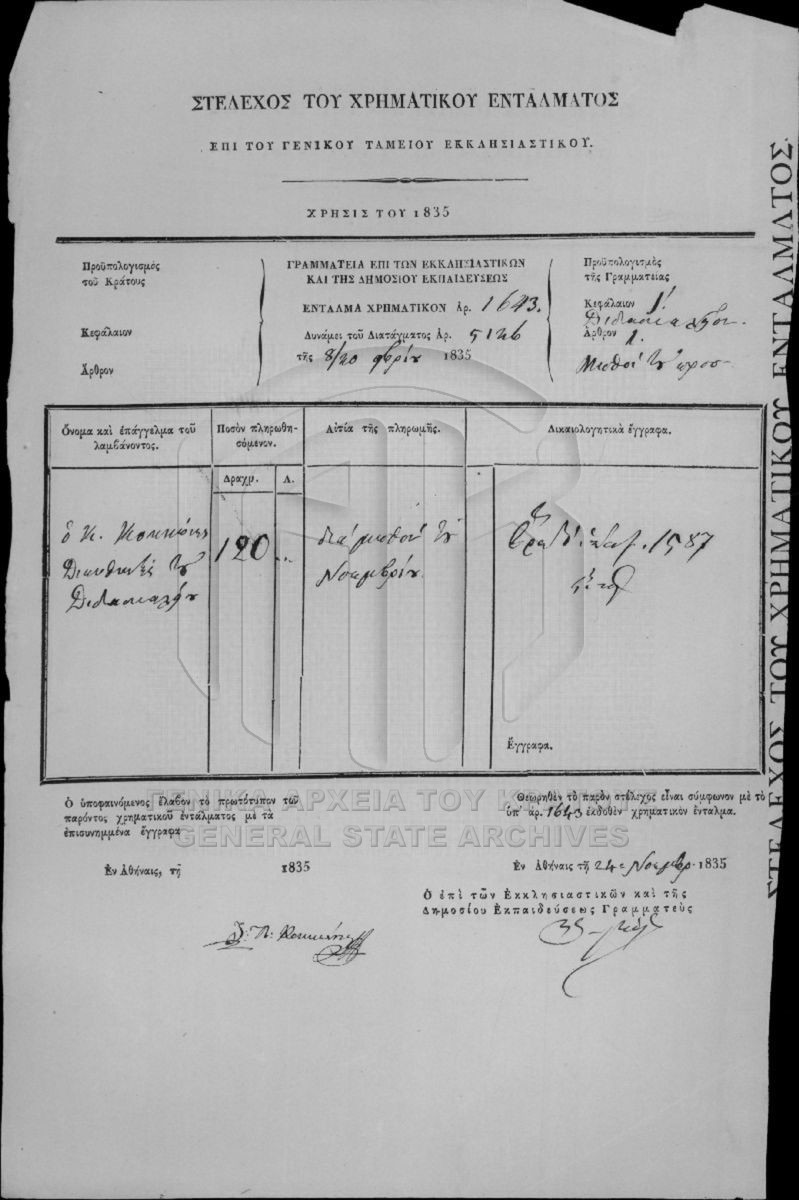 ΣΤΕΛΕΧΟΣ ΤΟΥ ΧΡΗΜΑΤΙΚΟΥ ΕΝΤΑΛΜΑΤΟΣ
ΕΠΙ ΤΟΥ ΓΕΝΙΚΟΥ ΤΑΜΕΙΟΥ ΕΚΚΛΗΣΙΑΣΤΙΚΟΥ.
ΧΡΗΣΙΣ ΤΟΥ 1835
Προϋπολογισμὸς
τοῦ Κράτους
Κεφάλαιον
Ἄρθρον
ΓΡΑΜΜΑΤΕΙΑ ΕΠΙ ΤΩΝ ΕΚΚΛΗΣΙΑΣΤΙΚΩΝ
ΚΑΙ ΤΗΣ ΔΗΜΟΣΙΟΥ ΕΚΠΑΙΔΕΥΣΕΩΣ
ΕΝΤΑΛΜΑ ΧΡΗΜΑΤΙΚΟΝ Ἀρ. 1643.
Δυνάμει τοῦ Διατάγματος Ἀρ. 5126
τῆς 8/20 1835
Προϋπολογισμὸς
τῆς Γραμματείας
Κεφάλαιον 1
Ἄρθρον 1.
Μισθοὶ
Ὄνομα καὶ ἐπάγγελμα τοῦ
λαμβάνοντος.
Ποσὸν πληρωθη-
σόμενον.
Δραχμ. Λ.
Αἰτία τῆς πληρωμῆς.
Δικαιολογητικὰ ἔγγραφα.
ὁ Κ. Κοκκώνης
Διευθυντὴς τοῦ
Διδασκαλείου
120 ..
διὰ μισθόν τοῦ
Νοεμβρίου
1587
Ἔγγραφα.
Ὁ ὑποφαινόμενος ἔλαβον τὸ πρωτότυπον τοῦ
παρόντος χρηματικοῦ ἐντάλματος μὲ τὰ
ἐπισυνημμένα ἔγγραφα
Ἐν Ἀθήναις, τῇ 1835
Ι. Π. Κοκκώνης
Θεωρηθὲν τὸ παρὸν στέλεχος εἶναι σύμφωνον μὲ τὸ
ὑπ' ἀρ. 1643 ἐκδοθὲν χρηματικὸν ἔνταλμα.
Ἐν Ἀθήναις τῇ 24 Νοεμβρ. 1835
Ὁ ἐπὶ τῶν Ἐκκλησιαστικῶν καὶ τῆς
Δημοσίου Ἐκπαιδεύσεως Γραμματεὺς
ΣΤΕΛΕΧΟΣ ΤΟΥ ΧΡΗΜΑΤΙΚΟΥ ΕΝΤΑΛΜΑΤΟΣ.
ΓΕΝΙΚΑ ΑΡΧΕΙΑ ΤΟΥ Κ
GENERAL STATE ARCHIVES